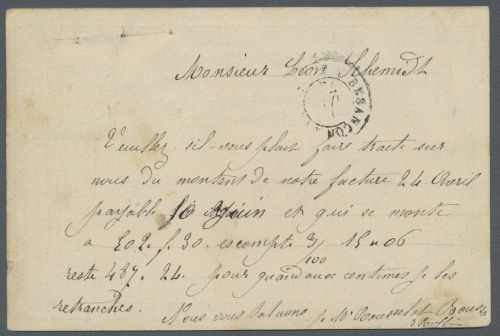 Monsieur Léon Schemidt
BESANÇON
Veuillez s'il-vous plait faire traite sur
nous du montant de notre facture 24 Avril
payable 10 Juin et qui se monte
a 502. f. 30. escompte 3/100 15 " 06
reste 487. 24. pour quand aux centimes je les
retranches.
Nous vous saluons p. Mr Rousselet